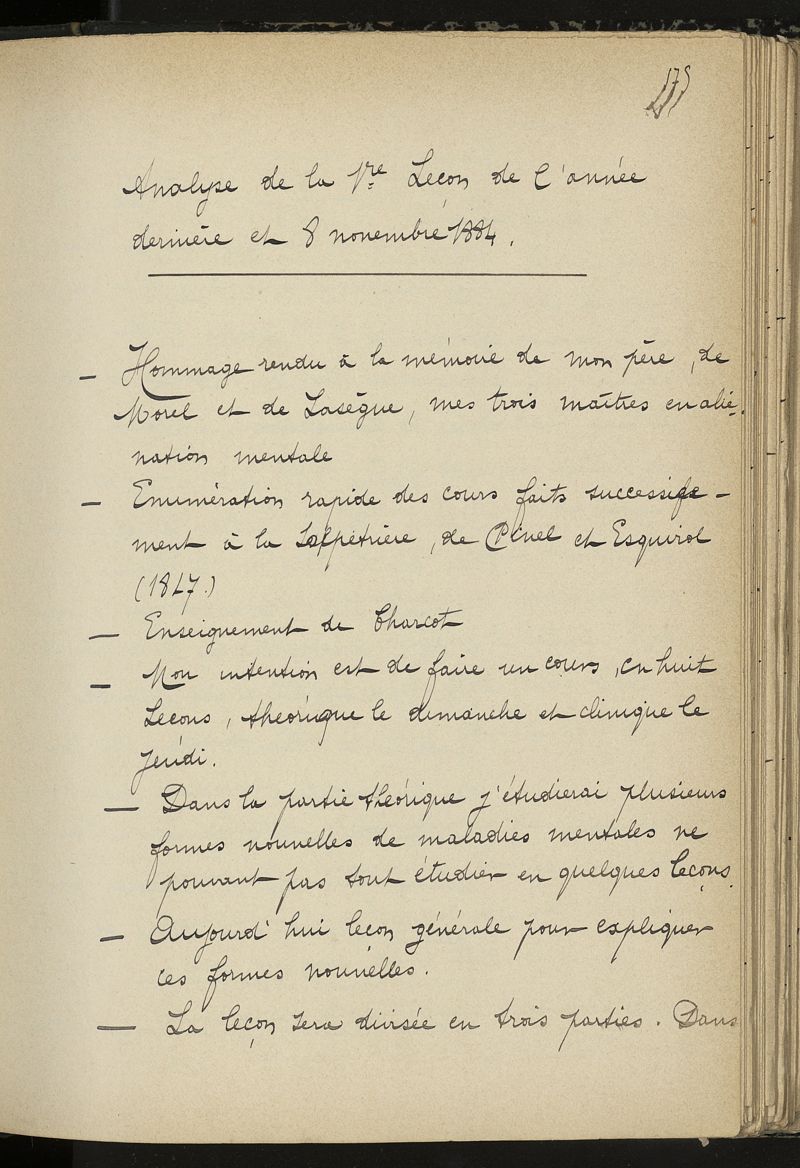 175
Analyse de la 1re Leçon de l'année
dernière et 8 novembre 1884.
— Hommage rendu à la mémoire de mon père, de
Morel et de Lasègue, mes trois maîtres en alié-
nation mentale
— Enumération rapide des cours faits successive-
ment à la Salpêtrière, de Pinel et Esquirol
(1817.)
— Enseignement de Charcot
— Mon intention est de faire un cours, en huit
Leçons, théorique le dimanche et clinique le
jeudi.
— Dans la partie théorique j'étudierai plusieurs
formes nouvelles de maladies mentales ne
pouvant pas tout étudier en quelques leçons.
— Aujourd'hui leçon générale pour expliquer
ces formes nouvelles.
— La leçon sera divisée en trois parties. Dans